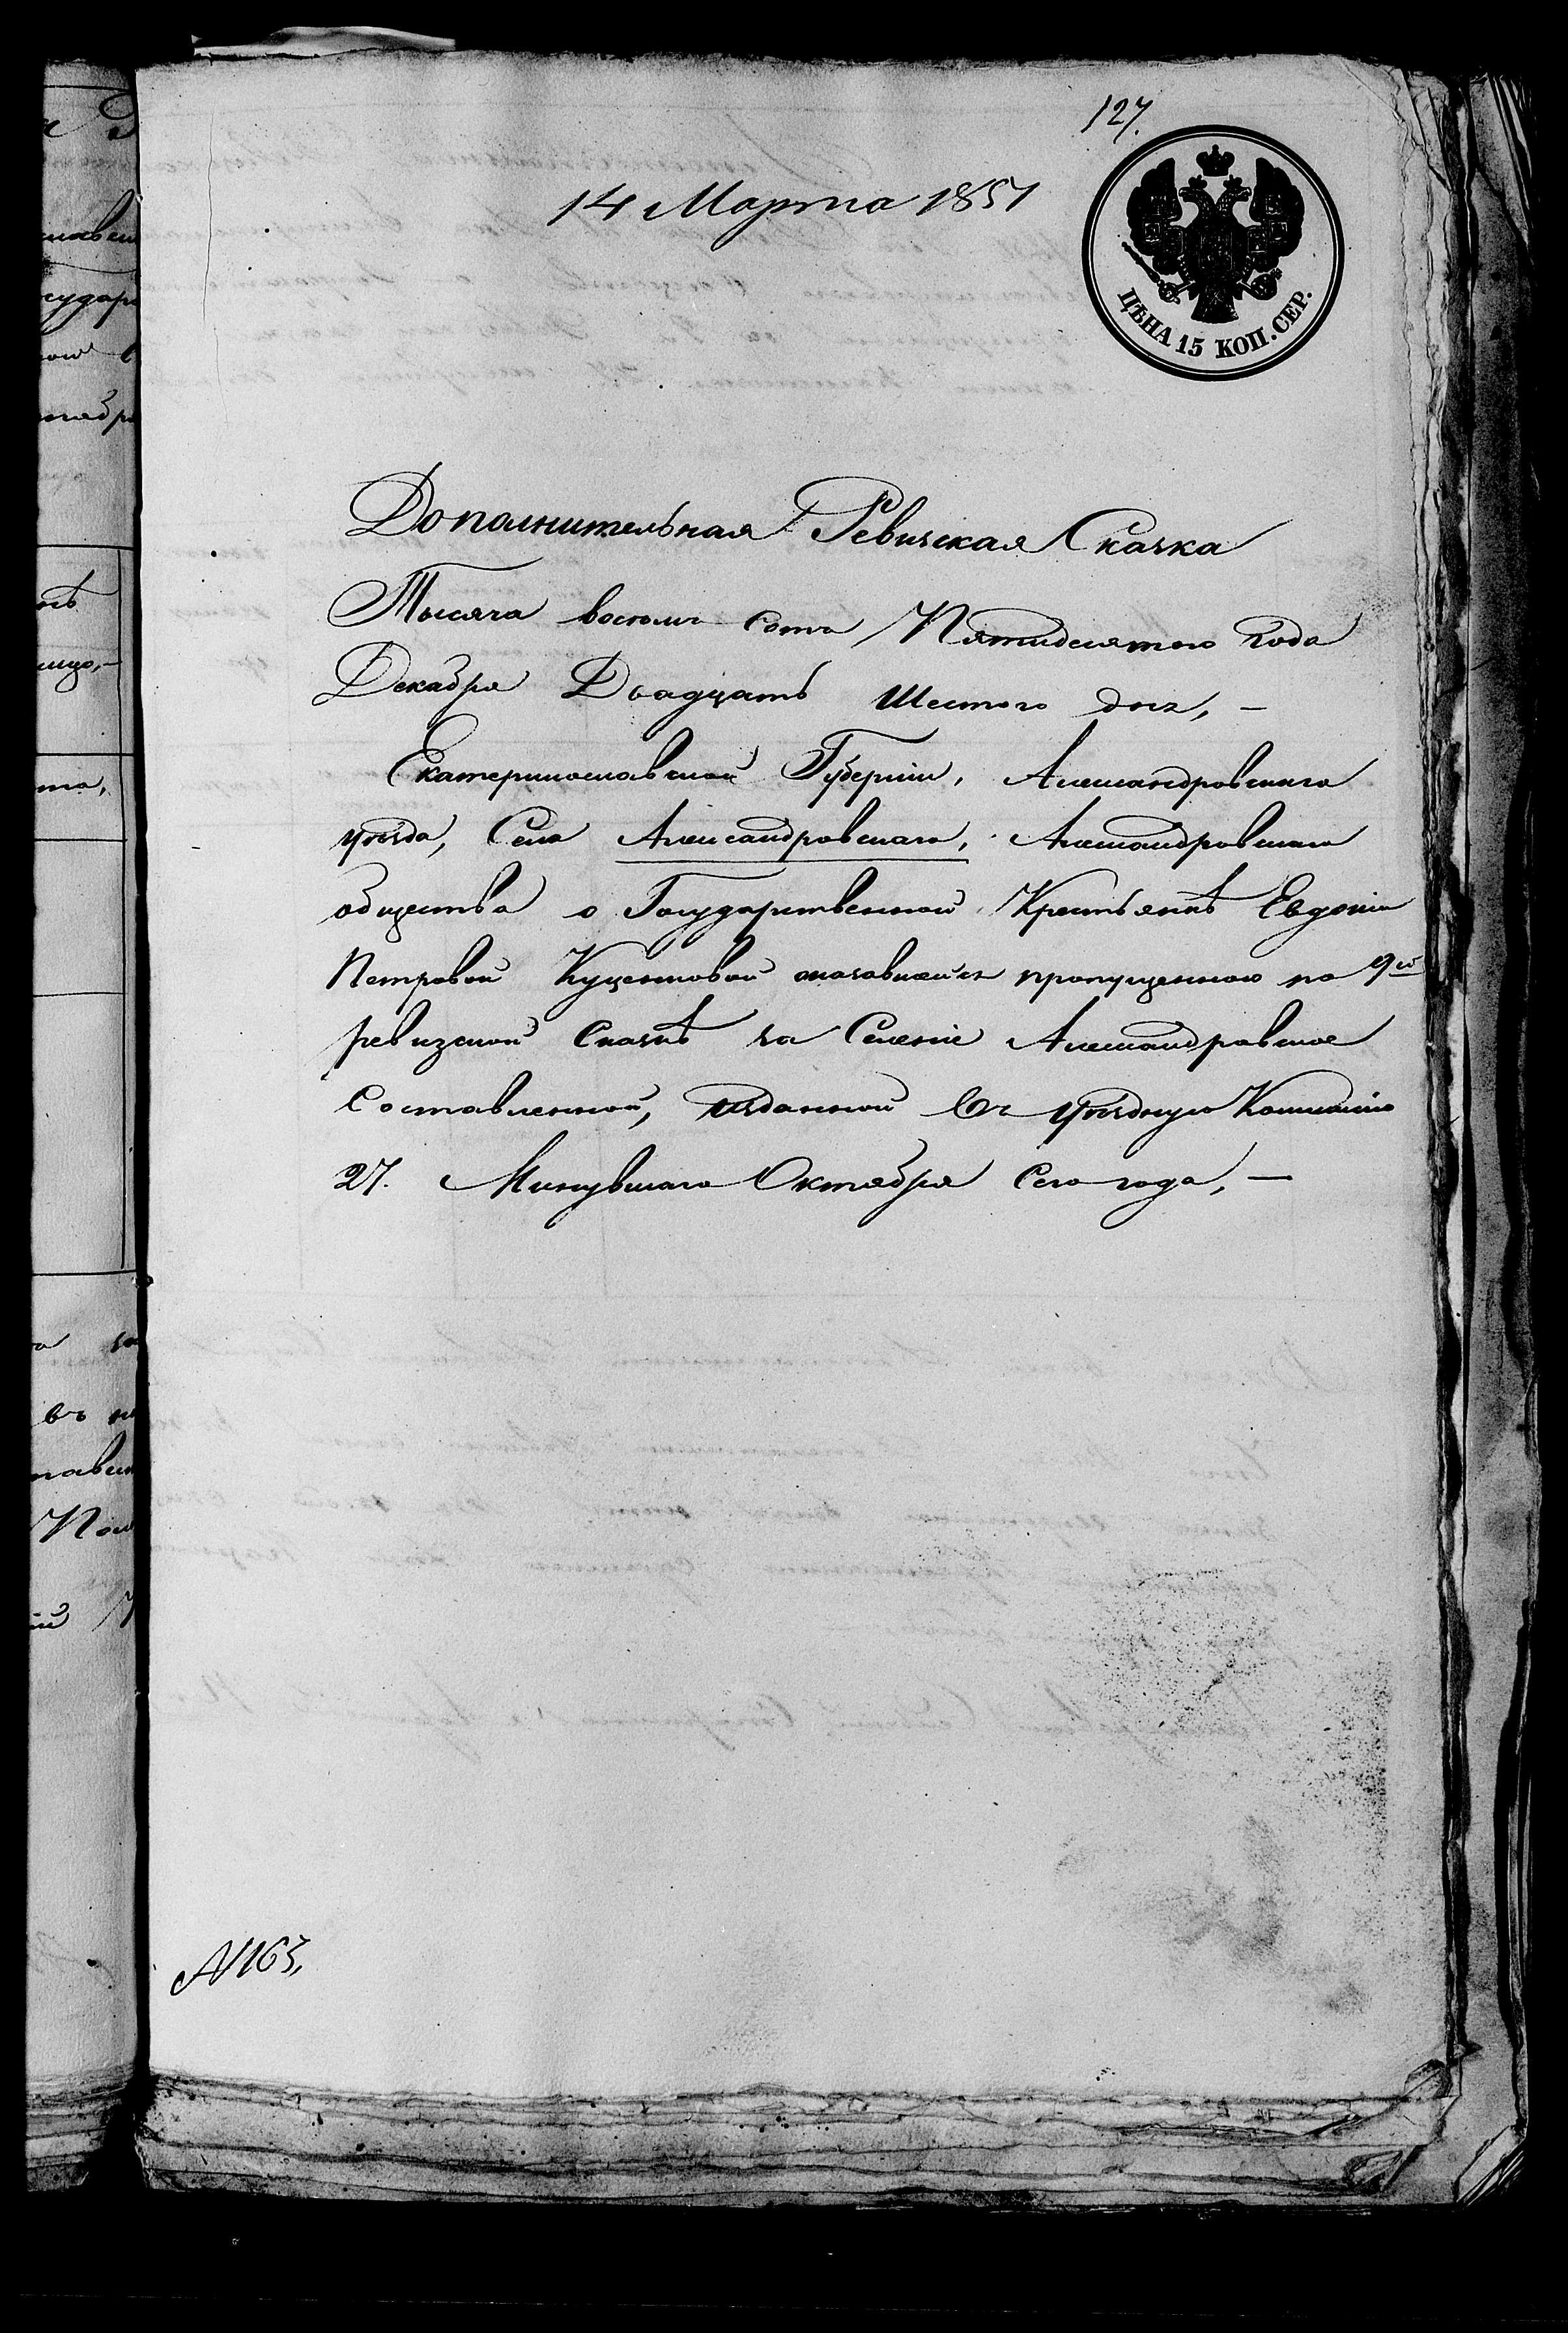 127.
14 Марта 1851
ЦѢНА 15 КОП. СЕР.
Дополнительная Ревизская Сказка
Тысяча восемь сотъ Пятидесятого года
Декабря Двадцать Шестого дня, —
Екатеринославской Губерніи, Александровскаго
уѣзда, Села Александровскаго, Александровскаго
общества о Государственной Крестьянкѣ Евдокіи
Петровой Куценковой оказавшейся пропущенною по 9ой
ревизской Сказкѣ на Селеніе Александровское
Составленной, изданной въ уѣздную Коммисію
27. Минувшаго Октября Сего года, —
№ 163,